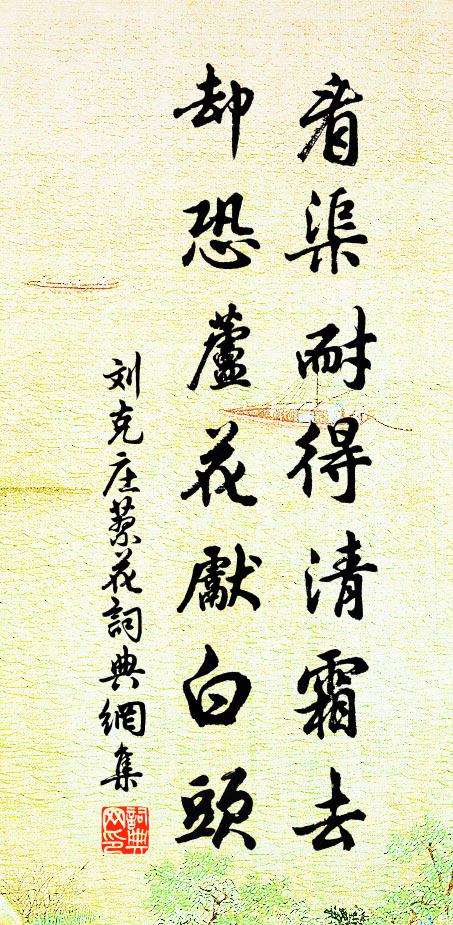 看渠耐得清霜去
却恐蘆花獻白頭
刘克庄蓼花詞典網集
詞典网印